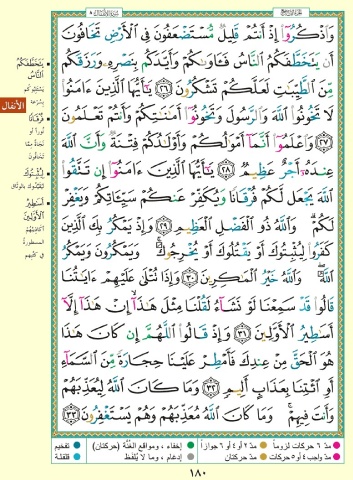 وَاذْكُرُوا إِذْ أَنتُمْ قَلِيلٌ مُّسْتَضْعَفُونَ فِي الْأَرْضِ تَخَافُونَ
أَن يَتَخَطَّفَكُمُ النَّاسُ فَآوَاكُمْ وَأَيَّدَكُم بِنَصْرِهِ وَرَزَقَكُم
مِّنَ الطَّيِّبَاتِ لَعَلَّكُمْ تَشْكُرُونَ ٢٦ يَا أَيُّهَا الَّذِينَ آمَنُوا
لَا تَخُونُوا اللَّهَ وَالرَّسُولَ وَتَخُونُوا أَمَانَاتِكُمْ وَأَنتُمْ تَعْلَمُونَ
٢٧ وَاعْلَمُوا أَنَّمَا أَمْوَالُكُمْ وَأَوْلَادُكُمْ فِتْنَةٌ وَأَنَّ اللَّهَ
عِندَهُ أَجْرٌ عَظِيمٌ ٢٨ يَا أَيُّهَا الَّذِينَ آمَنُوا إِن تَتَّقُوا
اللَّهَ يَجْعَل لَّكُمْ فُرْقَانًا وَيُكَفِّرْ عَنكُمْ سَيِّئَاتِكُمْ وَيَغْفِرْ
لَكُمْ وَاللَّهُ ذُو الْفَضْلِ الْعَظِيمِ ٢٩ وَإِذْ يَمْكُرُ بِكَ الَّذِينَ
كَفَرُوا لِيُثْبِتُوكَ أَوْ يَقْتُلُوكَ أَوْ يُخْرِجُوكَ وَيَمْكُرُونَ وَيَمْكُرُ
اللَّهُ وَاللَّهُ خَيْرُ الْمَاكِرِينَ ٣٠ وَإِذَا تُتْلَى عَلَيْهِمْ آيَاتُنَا
قَالُوا قَدْ سَمِعْنَا لَوْ نَشَاءُ لَقُلْنَا مِثْلَ هَذَا إِنْ هَذَا إِلَّا
أَسَاطِيرُ الْأَوَّلِينَ ٣١ وَإِذْ قَالُوا اللَّهُمَّ إِن كَانَ هَذَا
هُوَ الْحَقَّ مِنْ عِندِكَ فَأَمْطِرْ عَلَيْنَا حِجَارَةً مِّنَ السَّمَاءِ
أَوِ ائْتِنَا بِعَذَابٍ أَلِيمٍ ٣٢ وَمَا كَانَ اللَّهُ لِيُعَذِّبَهُمْ
وَأَنتَ فِيهِمْ وَمَا كَانَ اللَّهُ مُعَذِّبَهُمْ وَهُمْ يَسْتَغْفِرُونَ ٣٣
الأنفال
يَتَخَطَّفَكُمُ
النَّاسُ
بسُرعة
فُرْقَانًا
لِيُثْبِتُوكَ
أَسَاطِيرُ
الْأَوَّلِينَ
أكاذيبهم
المسطورة
في كتبهم
مدّ ٦ حركات لزوماً
مدّ ٢ أو ٤ أو ٦ جوازاً
إخفاء، ومواقع الغُنَّة (حركتان)
تفخيم
مدّ واجب ٤ أو ٥ حركات
مدّ حركتان
إدغام، وما لا يُلفَظ
قلقلة
١٨٠